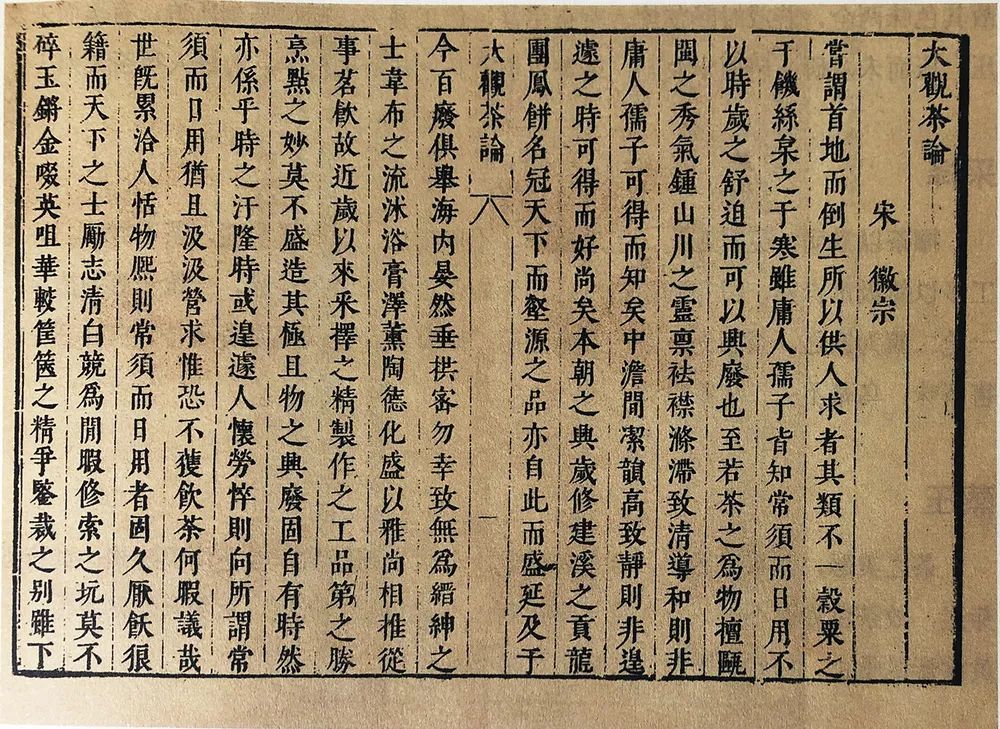 大觀茶論
宋 徽宗
嘗謂首地而倒生所以供人求者其類不一穀粟之
于饑絲枲之于寒雖庸人孺子皆知常須而日用不
以時歲之舒迫而可以興廢也至若茶之為物檀甌
閩之秀氣鍾山川之靈禀袪襟滌滯致清導和則非
庸人孺子可得而知矣中澹閒潔韻高致靜則非遑
遽之時可得而好尚矣本朝之興歲修建溪之貢龍
團鳳餅名冠天下而壑源之品亦自此而盛延及于
大觀茶論 一
今百廢俱舉海內晏然垂拱宻勿幸致無為縉紳之
士韋布之流沐浴膏澤薰陶德化盛以雅尚相推從
事茗飲故近歲以來采擇之精製作之工品第之勝
烹點之妙莫不盛造其極且物之興廢固自有時然
亦係乎時之汙隆時或遑遽人懷勞悴則向所謂常
須而日用猶且汲汲營求惟恐不獲飲茶何暇議哉
世旣累洽人恬物熙則常須而日用者固久厭飫狼
籍而天下之士勵志清白競為閒暇修索之玩莫不
碎玉鏘金啜英咀華較筐篋之精爭鑒裁之别雖下